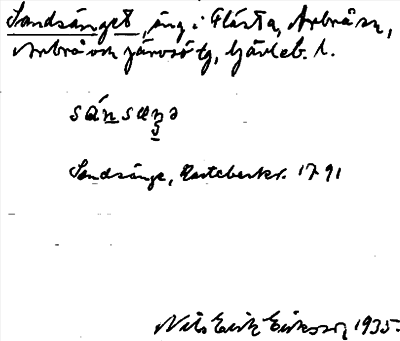 Sandsänget, äng i Flästa, Arbrå sn,
Arbrå och Järvsö tg, Gävleb. l.
sánsæŋə
Sandsänge, Kartebeskr. 1791
Nils Erik Eriksson 1935.